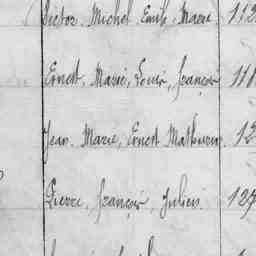 Victor, Michel Emile Marie 112
Ernest, Marie, Louis, françois 111
Jean. Marie, Ernest Mathurin, 12
Pierre, françois, Julien. 127